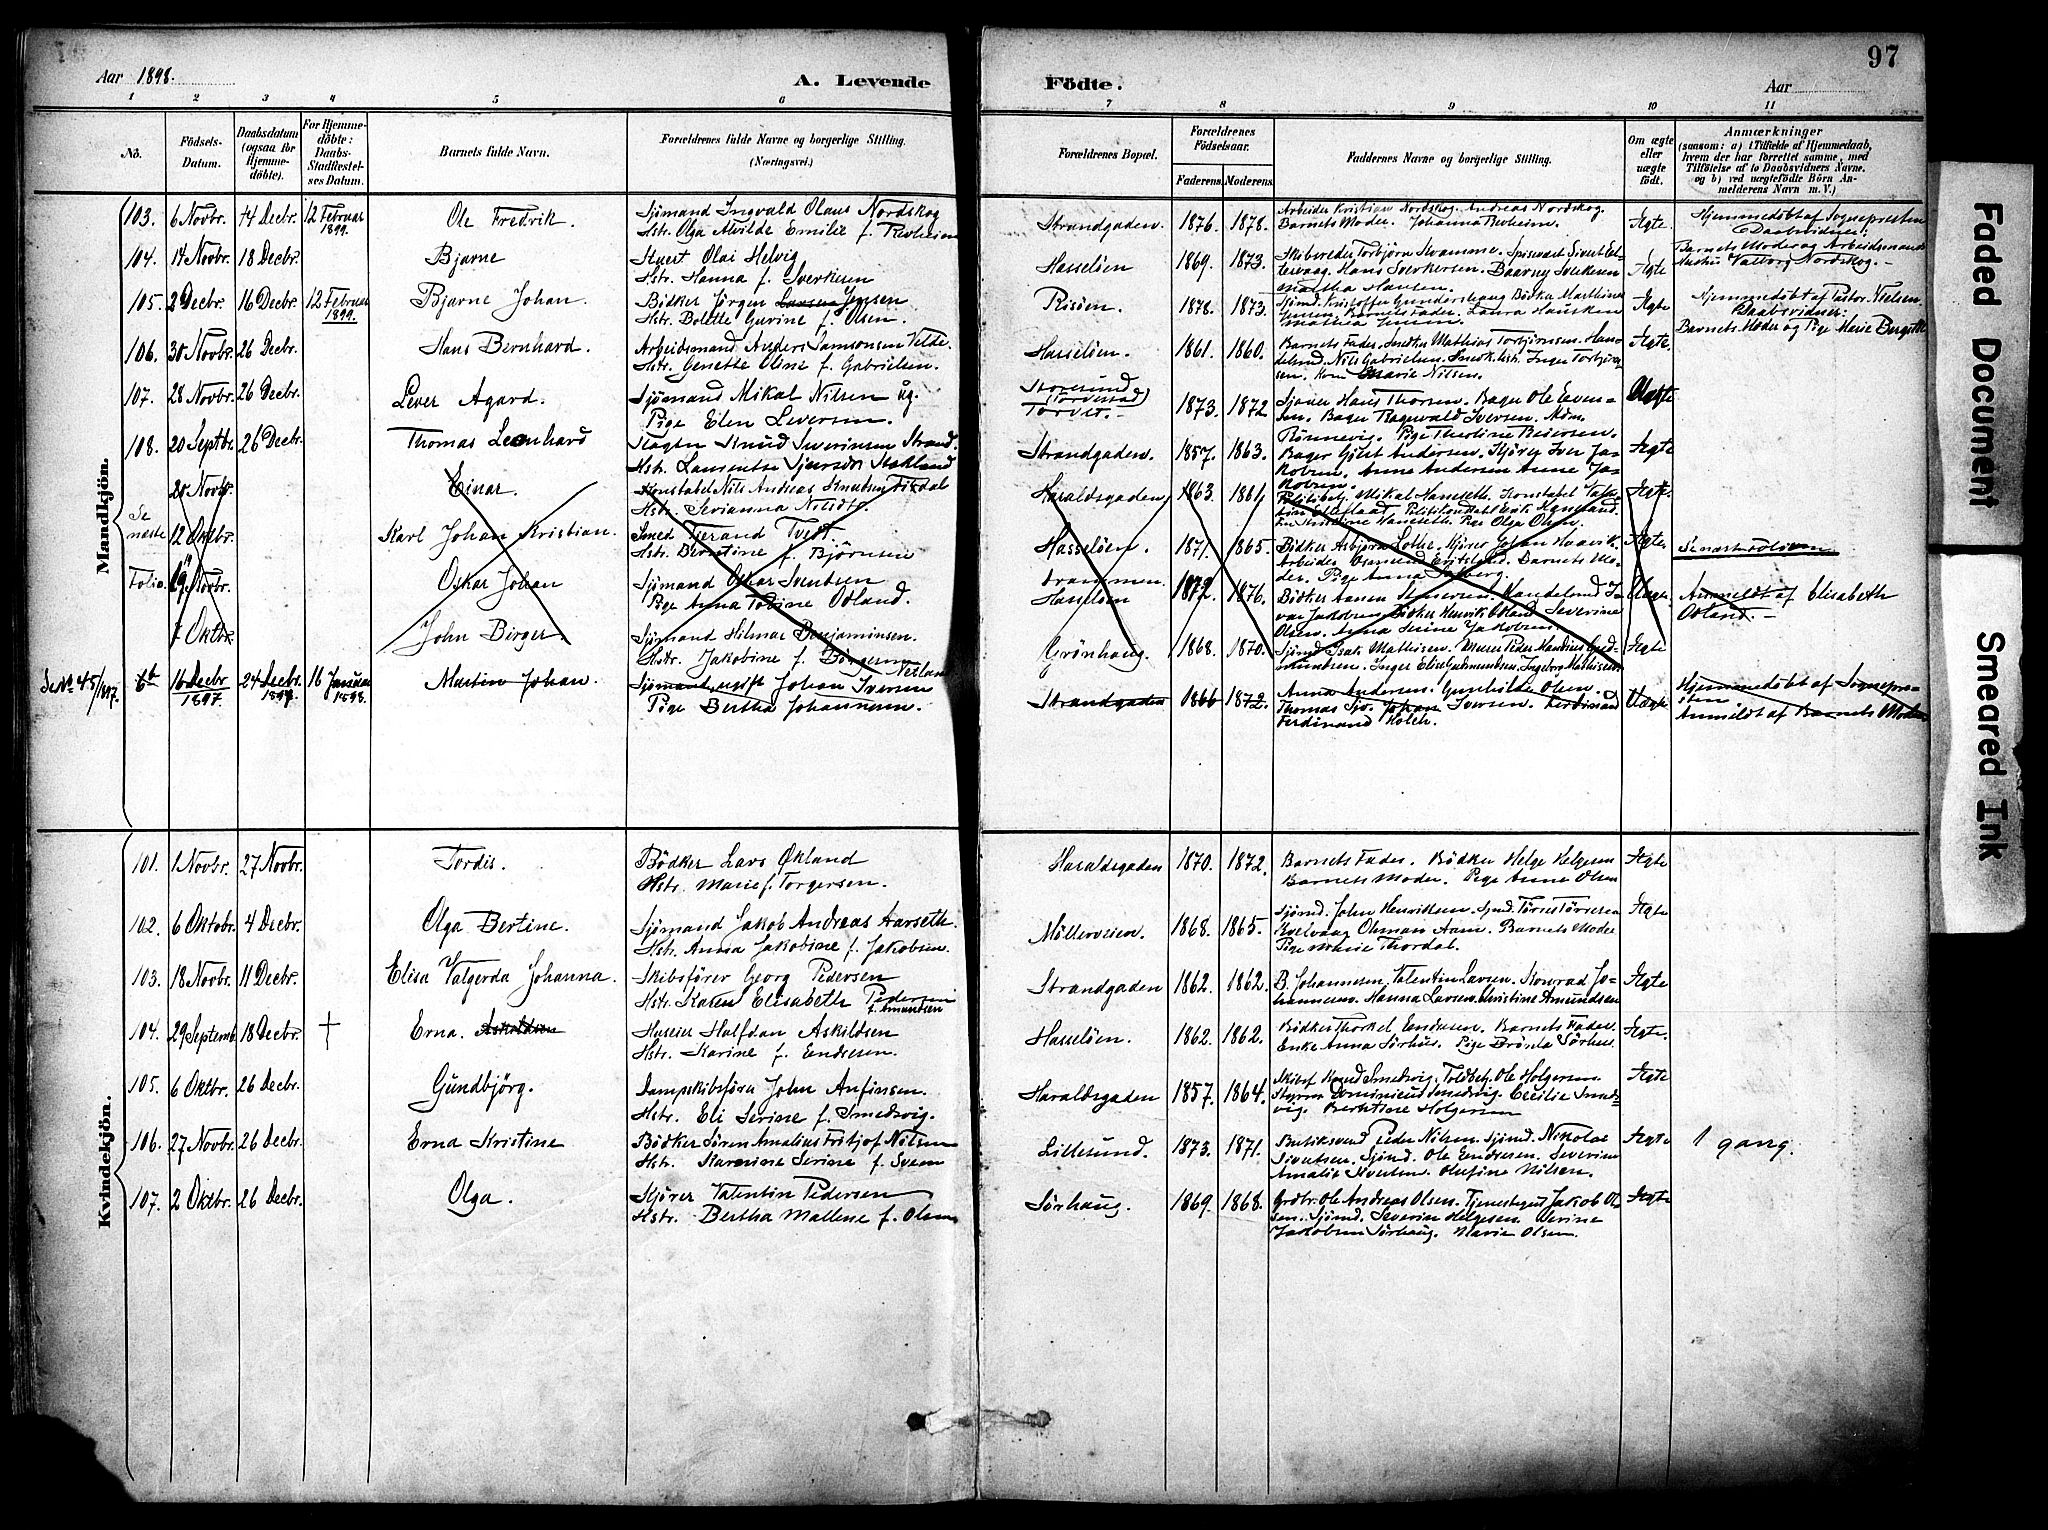 97
Aar 1898.
A. Levende Födte.
Aar
1 2 3 4 5 6 7 8 9 10 11
No.
Födsels-Datum.
Daabsdatum (ogsaa for Hjemme-döbte).
For Hjemme-döbte: Daabs-Stadfæstel-ses Datum.
Barnets fulde Navn.
Forældrenes fulde Navne og borgerlige Stilling. (Næringsvei.)
Forældrenes Bopæl.
Forældrenes Födselsaar.
Faderens. Moderens.
Faddernes Navne og borgerlige Stilling.
Om ægte eller uægte födt.
Anmærkninger (saasom: a) i Tilfælde af Hjemmedaab, hvem der har forrettet samme, med Tilföielse af to Daabsvidners Navne. og b) ved uægtefödte Börn An-melderens Navn m. V.)
Mandkjön.
103. 6 Novbr. 14 Decbr. 12 Februar 1899. Ole Fredrik. Sjömand Ingvald Olaus Nordskog
Hstr. Olga Alvilde Emilie f. Revheim
Strandgaden. 1876. 1878. Arbeider Kristian Nordskog. Andreas Nordskog.
Barnets Moder. Johanna Revheim. Ægte. Hjemmedöbt af Sognepresten
Daabsvidner:
Barnets Moder og Arbeidsmands
Valborg Nordskog.
104. 14 Novbr. 18 Decbr. Bjarne Stuert Olai Helvig
Hstr. Hanna f. Sverkesen
Hasselöen 1869. 1873. Skibsreder Torbjörn Svamme.
Hans Sverkersen.
Martha Hansen Ægte
105. 2 Decbr. 16 Decbr. 12 Februar 1899. Bjarne Johan. Bödker Jörgen Larsen Jensen
Hstr. Bolette Gurine f. Olsen.
Risöen. 1878. 1873. Sjömd. Kristoffer Gundershaug Bödker Mathias
Jensen. Barnets Fader. Laura Hausken
Mathia Jensen Ægte Hjemmedöbt af Pastor Nielsen.
Daabsvidner:
Barnets Moder og Pige Marie Bergitte
106. 30 Novbr. 26 Decbr. Hans Bernhard. Arbeidsmand Anders Samsonsen Velde.
Hstr. Genette Oline f. Gabrielsen.
Hasselöen. 1861. 1860. Barnets Fader. Snedker Mathias Torbjörnsen. Han-
delsmd. Nils Gabrielsen. Snedk. hstr. Inger Torbjörn-
sen. Kone Marie Nilsen. Ægte.
107. 28 Novbr. 26 Decbr. Lever Agard. Sjömand Mikal Nilsen og.
Pige Elen Leversen.
Storesund (Torvestad)
Torvet. 1873. 1872 Sjauer Hans Thorsen. Bager Ole Even-
sen. Bager Ragnvald Iversen.
Rönnevig. Pige Theoline Reiersen. Uægte
108. 20 Septbr. 26 Decbr. Thomas Leonhard Slagter Knud Severinsen Strand.
Hstr. Laurentse Sjursdr Stakland
Strandgaden. 1857. 1863. Bager Gjöst Andersen. Kjörer Iver Ja-
kobsen. Anna Andersen Anna Ja-
kobsen. Ægte
Se næste Folio.
20 Novbr. Einar. Konstabel Nils Andreas Knudsen Fiskdal
Hstr. Serianna Nilsdtr.
Haraldsgaden 1863. 1861 Politibetj. Mikal Hanseth. Konstabel
Pige Olga Olsen. Ægte.
12 Oktbr. Karl Johan Kristian. Smed Tjerand Tvedt.
Hstr. Berntine f. Björnsen
Hasselöen. 1871. 1865. Bödker Asbjörn Lothe. Kjörer Johan Haavik.
Arbeider Barnets Mo-
der. Pige Anna Ægte. Se næste Folio
19 Novbr. Oskar Johan Sjömand Oskar Svendsen
Pige Anna Tobine Odland.
Drammen.
Hasselöen 1872. 1876. Bödker Aamen Handelsmd. I-
var Jakobsen. Bödker Henrik Odland Severine
Olsen. Anna Serine Jakobsen. Uægte. Anmeldt af Elisabeth
Odland.
1 Oktbr. John Birger. Sjömand Hilmar Benjaminsen.
Hstr. Jakobine f. Börgesen
Grönhaug. 1868. 1870. Sjömd. Isak Mathisen. Murer Peder Mandius Gud-
mundsen. Inger Elise Gudmundsen. Ingeborg Mathisen Ægte
Se No 45/1897. 6te 16 Decbr 1897. 24 Decbr. 1897. 16 Januar 1898. Martin Johan. Sjömand, ugift Johan Iversen
Pige Bertha Johannesen.
Strandgaden 1866 1872. Anna Andersen. Gunhilde Olsen.
Thomas Sjö. Johan Iversen. Ferdinand
Ferdinand Holck. Uægte Hjemmedöbt af Sognepre-
sten
Anmeldt af Barnets Moder
Kvindekjön.
101. 1 Novbr. 27 Novbr. Tordis. Bödker Lars Økland
Hstr. Marie f. Torgersen.
Haraldsgaden 1870. 1872. Barnets Fader. Bödker Helge Helgesen
Barnets Moder. Pige Anne Olsen Ægte
102. 6 Oktobr. 4 Decbr. Olga Bertine. Sjömand Jakob Andreas Aarseth.
Hstr. Anna Jakobine f. Jakobsen.
Möllerveien. 1868. 1865. Sjömd. John Henriksen. Sjmd. Törres Törresen
Kvelvaag Osman Aam. Barnets Moder
Pige Marie Thordal. Ægte
103. 18 Novbr. 11 Decbr. Elisa Valgerda Johanna. Skibsförer Georg Pedersen
Hstr. Karen Elisabeth Pedersen
f. Amundsen
Strandgaden 1862. 1862. B. Johannesen. Valentin Larsen. Konrad Jo-
hannesen. Hanna Larsen. Christine Amundsen Ægte
104. 29 Septemb. 18 Decbr. † Erna. Askildsen Huseier Halfdan Askildsen
Hstr. Karine f. Endresen.
Hasselöen. 1862. 1862. Bödker Thorkel Endresen. Barnets Fader.
Enke Anna Sörhus. Pige Brönla Sörhus. Ægte.
105. 6 Oktbr. 26 Decbr. Gundbjörg. Dampskibsförer John Anfinsen.
Hstr. Eli Serine f. Smedsvig.
Haraldsgaden 1857. 1864. Skibsf. Knud Smedsvig. Toldbetj. Ole Holgersen.
Styrmand Dominicus Smedsvig. Cecilie Smeds-
vig. Berntine Holgersen Ægte
106. 27 Novbr. 26 Decbr. Erna Kristine Bödker Sören Amalius Fritjof Nilsen
Hstr. Karenine Serine f. Svens
Lillesund. 1873. 1871. Butiksvend Peder Nilsen. Sjömd. Nikolai
Sivertsen. Sjömd. Ole Endresen. Severine
Amalie Sivertsen. Olufine Nilsen. Ægte 1 gang.
107. 2 Oktbr. 26 Decbr. Olga. Kjörer Valentin Pedersen
Hstr. Bertha Mallene f. Olsen
Sörhaug. 1869. 1868. Grdbr. Ole Andreas Olsen. Tjenestegut Jakob Ol-
sen. Sjömd. Severin Helgesen. Serine
Jakobsen Sörhaug. Marie Olsen. Ægte
Faded Document
Smeared Ink